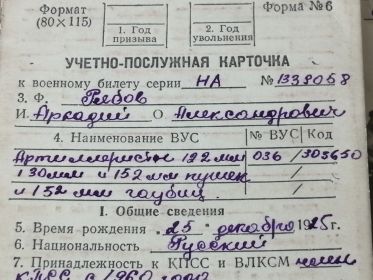 Формат
(80×115)
1. Год призыва
2. Год увольнения
Форма № 6
УЧЕТНО-ПОСЛУЖНАЯ КАРТОЧКА
к военному билету серии НА № 1338058
3. Ф. Рябов
И. Аркадий О. Александрович
4. Наименование ВУС № ВУС Код
Артиллеристы 122мм 036 / 303650
130мм и 152мм пушек /
и 152 мм гаубиц. /
I. Общие сведения
5. Время рождения "25" декабря 1925г.
6. Национальность Русский
7. Принадлежность к КПСС и ВЛКСМ член
КПСС с 1960 года